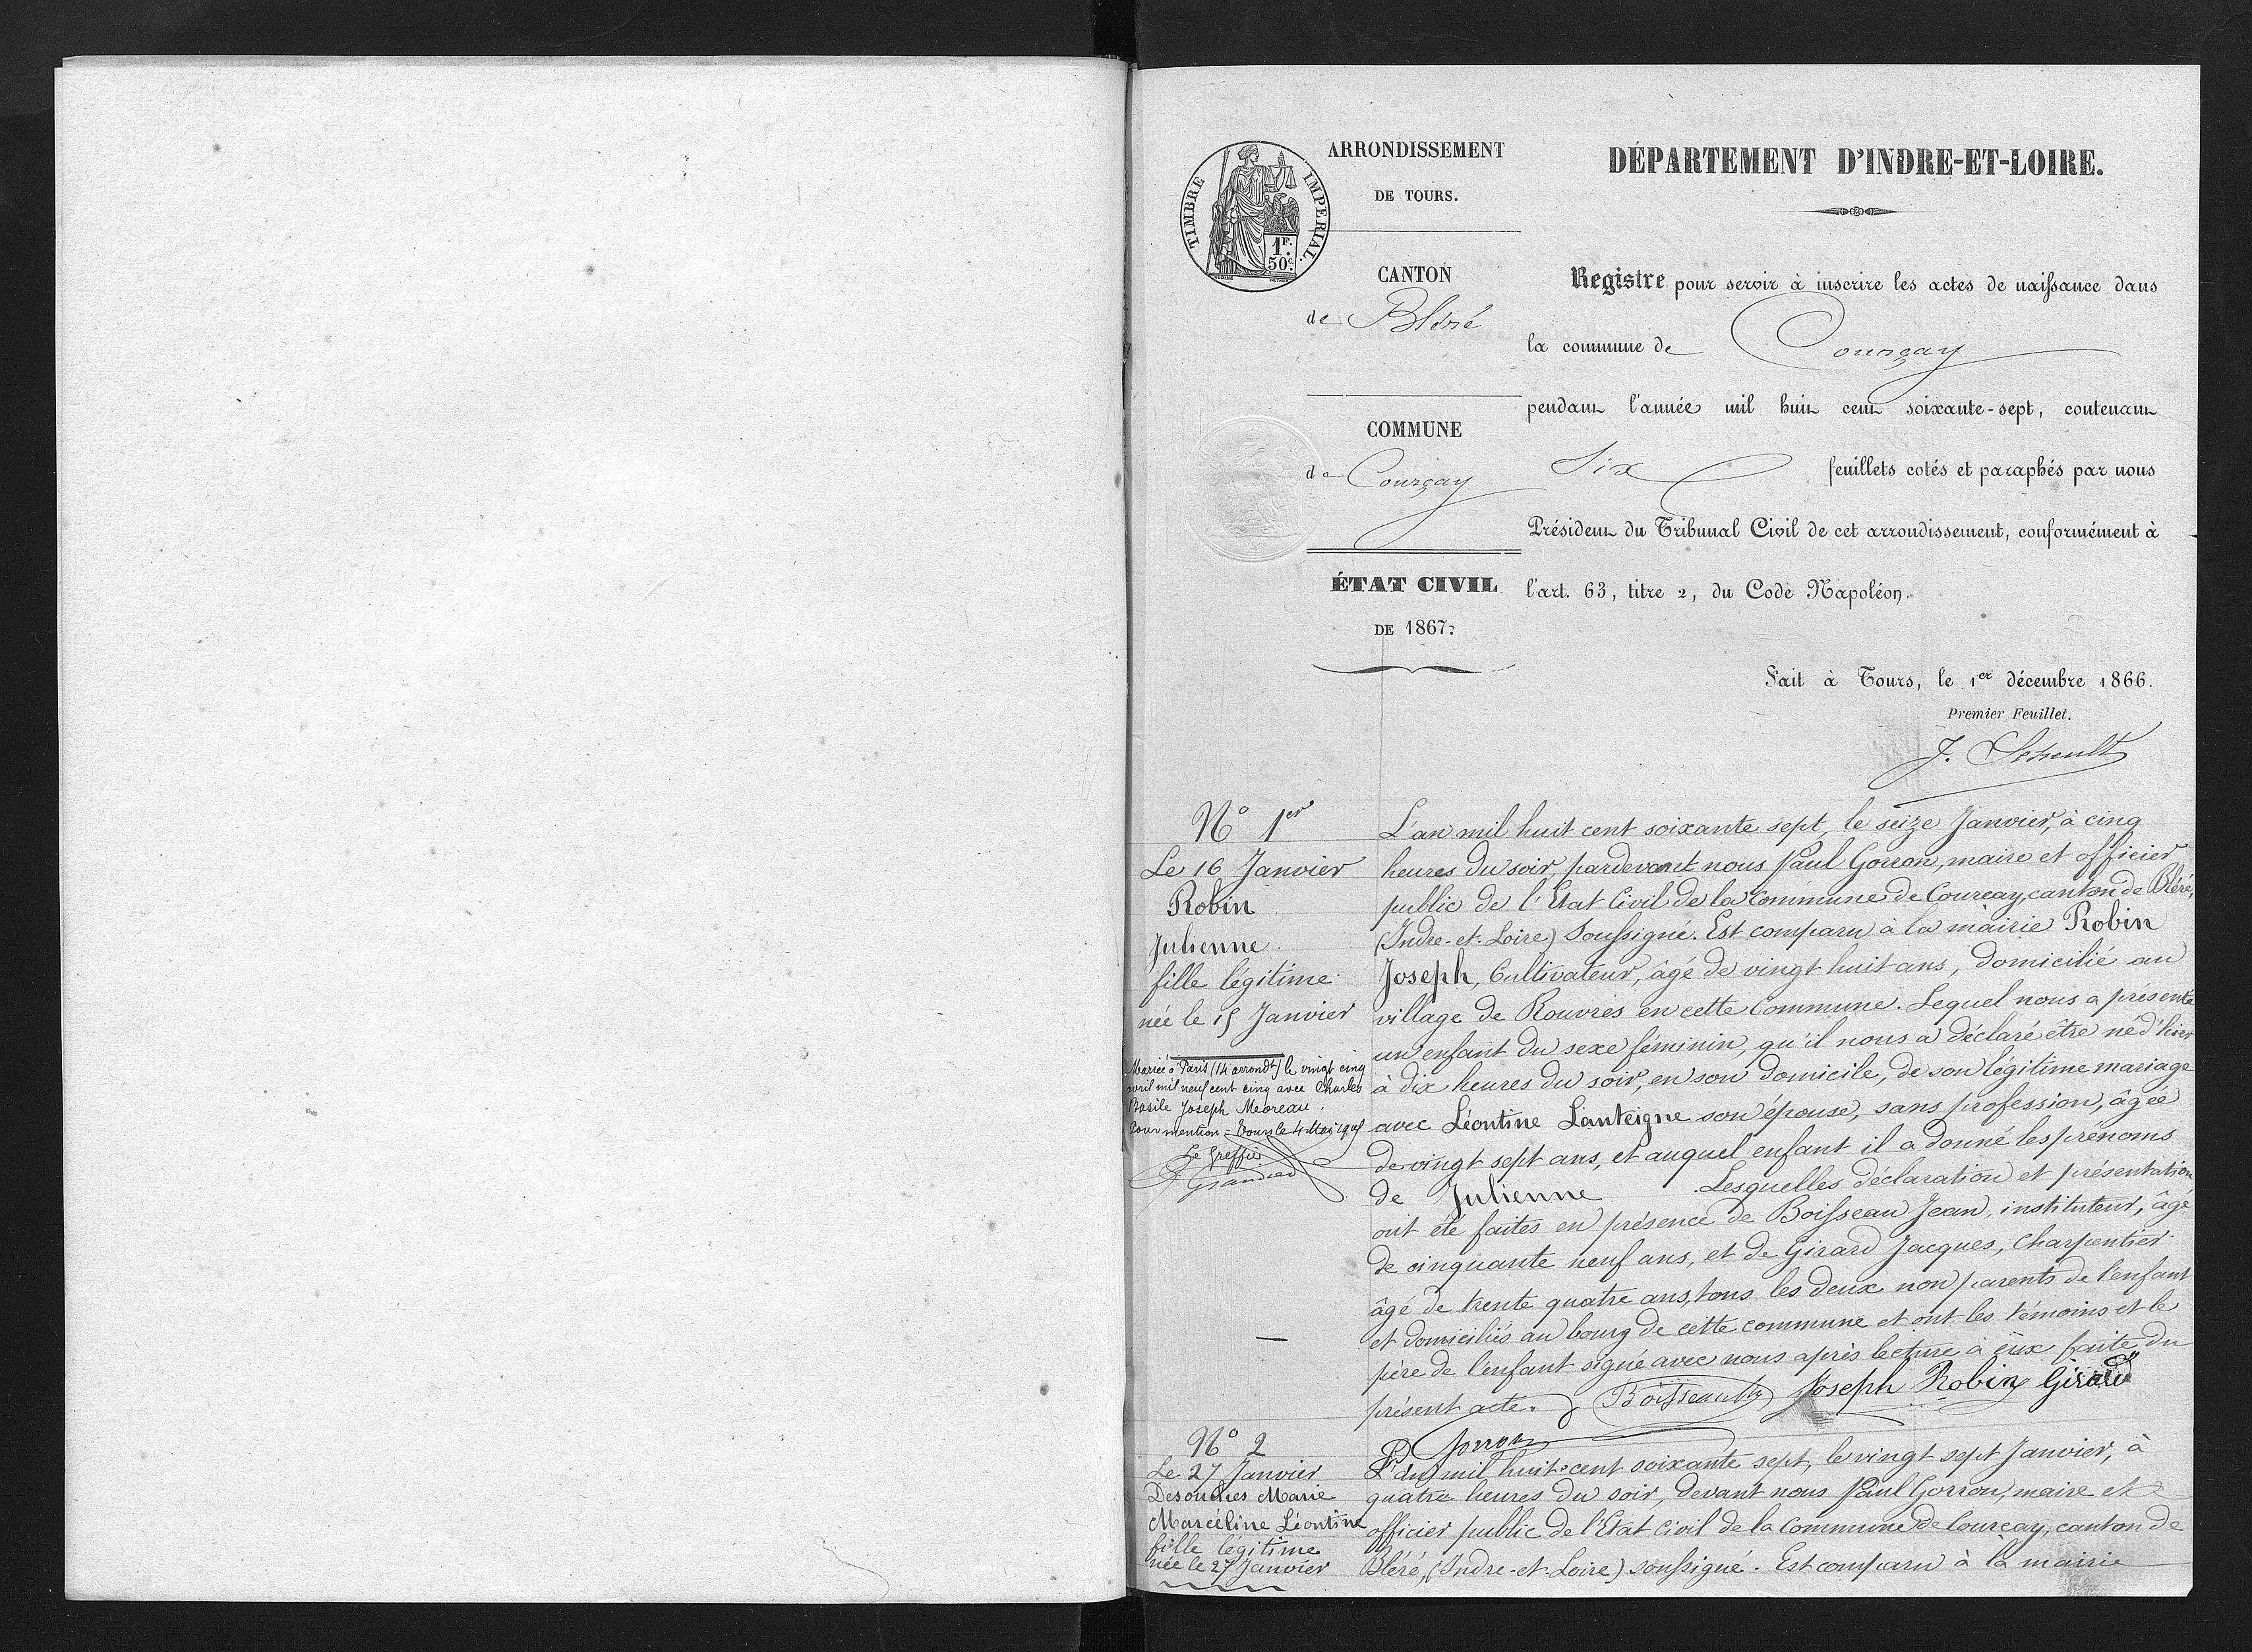 TIMBRE IMPERIAL.
1F.
50c.
ARRONDISSEMENT
DE TOURS.
CANTON
de Bléré
COMMUNE
de Courçay
ÉTAT CIVIL
DE 1867.
DÉPARTEMENT D'INDRE-ET-LOIRE.
Registre pour servir à inscrire les actes de naissance dans
la commune de Courçay
pendant l'année mil huit cent soixante-sept, contenant
Six feuillets cotés et paraphés par nous
Président du Tribunal Civil de cet arrondissement, conformément à
l'art. 63, titre 2, du Code Napoléon.
Fait à Tours, le 1er décembre 1866.
Premier Feuillet.
J.
N° 1er
Le 16 Janvier
Robin
Julienne
fille légitime
née le 15 Janvier
Mariée à Paris (14 arrondt) le vingt cinq
avril mil neuf cent cinq avec Charles
Basile Joseph Moreau.
Pour mention = Tours le 4 Mai 1905
Le Greffier
L'an mil huit cent soixante sept, le seize Janvier, à cinq
heures du soir, pardevant nous Paul Gorron, maire et officier
public de l'Etat Civil de la Commune de Courçay, canton de Bléré,
(Indre-et-Loire) Soussigné. Est comparu à la mairie Robin
Joseph, Cultivateur, âgé de vingt huit ans, domicilié au
village de Rouvres en cette Commune. Lequel nous a présenté
un enfant du sexe féminin, qu'il nous a déclaré être né d'hier
à dix heures du soir, en son domicile, de son légitime mariage
avec Léontine Lanteigne son épouse, sans profession, âgée
de vingt sept ans, et auquel enfant il a donné les prénoms
de Julienne. Lesquelles déclaration et présentation
ont été faites en présence de Boisseau Jean, instituteur, âgé
de cinquante neuf ans, et de Girard Jacques, Charpentier
âgé de trente quatre ans, tous les deux non parents de l'enfant
et domiciliés au bourg de cette commune et ont les témoins et le
père de l'enfant signé avec nous après lecture à eux faite du
présent acte. Boisseau Joseph Robin Girard
P Gorron
N° 2
Le 27 Janvier
Desouches Marie
Marceline Léontine
fille légitime
née le 27 Janvier
L'an mil huit cent soixante sept, le vingt sept Janvier, à
quatre heures du soir, devant nous Paul Gorron, maire et
officier public de l'Etat Civil de la Commune de Courçay, canton de
Bléré, (Indre-et-Loire) soussigné. Est comparu à la mairie